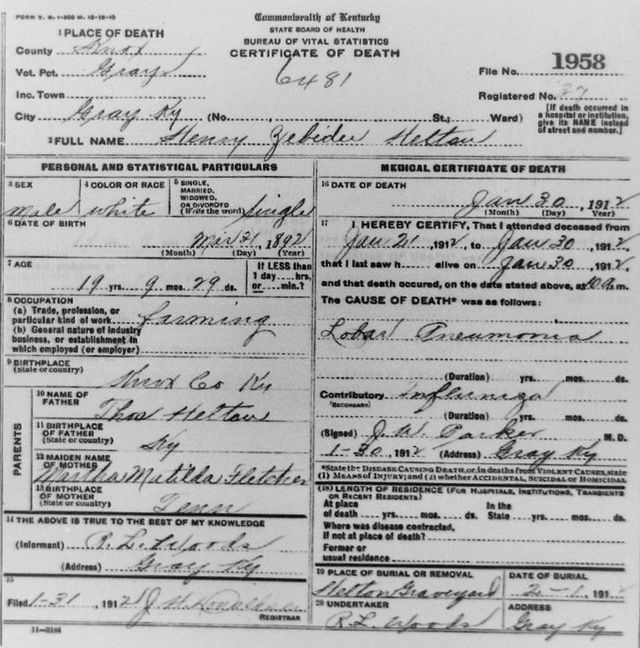 FORM V. S. 1-300 M. 10-18-10
Commonwealth of Kentucky
STATE BOARD OF HEALTH
BUREAU OF VITAL STATISTICS
CERTIFICATE OF DEATH
1 PLACE OF DEATH
County Knox
Vot. Pct. Gray
Inc. Town
City Gray Ky (No. , St.; Ward)
6481
File No. 1958
Registered No. 37
[If death occurred in a hospital or institution, give its NAME instead of street and number.]
2 FULL NAME Henry Zebidee Helton
PERSONAL AND STATISTICAL PARTICULARS
3 SEX
male
4 COLOR OR RACE
white
5 SINGLE, MARRIED, WIDOWED, OR DIVORCED (Write the word) single
6 DATE OF BIRTH
Mar 31, 1892
(Month) (Day) (Year)
7 AGE
19 yrs. 9 mos. 29 ds.
If LESS than 1 day....hrs. or.....min.?
8 OCCUPATION
(a) Trade, profession, or particular kind of work farming
(b) General nature of industry business, or establishment in which employed (or employer)
9 BIRTHPLACE
(State or country)
Knox Co Ky
PARENTS
10 NAME OF FATHER
Thos Helton
11 BIRTHPLACE OF FATHER
(State or country)
Ky
12 MAIDEN NAME OF MOTHER
Martha Matilda Fletcher
13 BIRTHPLACE OF MOTHER
(State or country)
Tenn
14 THE ABOVE IS TRUE TO THE BEST OF MY KNOWLEDGE
(Informant) R. L. Woods
(Address) Gray Ky
15
Filed 1-31, 1912 J. H.
REGISTRAR
11-3184
MEDICAL CERTIFICATE OF DEATH
16 DATE OF DEATH
Jan 30, 1912
(Month) (Day) (Year)
17 I HEREBY CERTIFY, That I attended deceased from
Jan 21, 1912, to Jan 30 1912,
that I last saw h alive on Jan 30, 1912,
and that death occured, on the date stated above, at 10 a.m.
The CAUSE OF DEATH* was as follows:
Lobar Pneumonia
(Duration) yrs. mos. ds.
Contributory Influniza
(SECONDARY)
(Duration) yrs. mos. ds.
(Signed) J. W. Parker M. D.
1-30, 1912 (Address) Gray Ky
*State the DISEASE CAUSING DEATH, or, in deaths from VIOLENT CAUSES, state (1) MEANS OF INJURY; and (2) whether ACCIDENTAL, SUICIDAL or HOMICIDAL
(18) LENGTH OF RESIDENCE (FOR HOSPITALS, INSTITUTIONS, TRANSIENTS OR RECENT RESIDENTS)
At place of death yrs. mos. ds. In the State yrs. mos. ds.
Where was disease contracted, if not at place of death?
Former or usual residence
19 PLACE OF BURIAL OR REMOVAL
Helton Graveyard
DATE OF BURIAL
2-1, 1912
20 UNDERTAKER
R L Woods
ADDRESS
Gray Ky